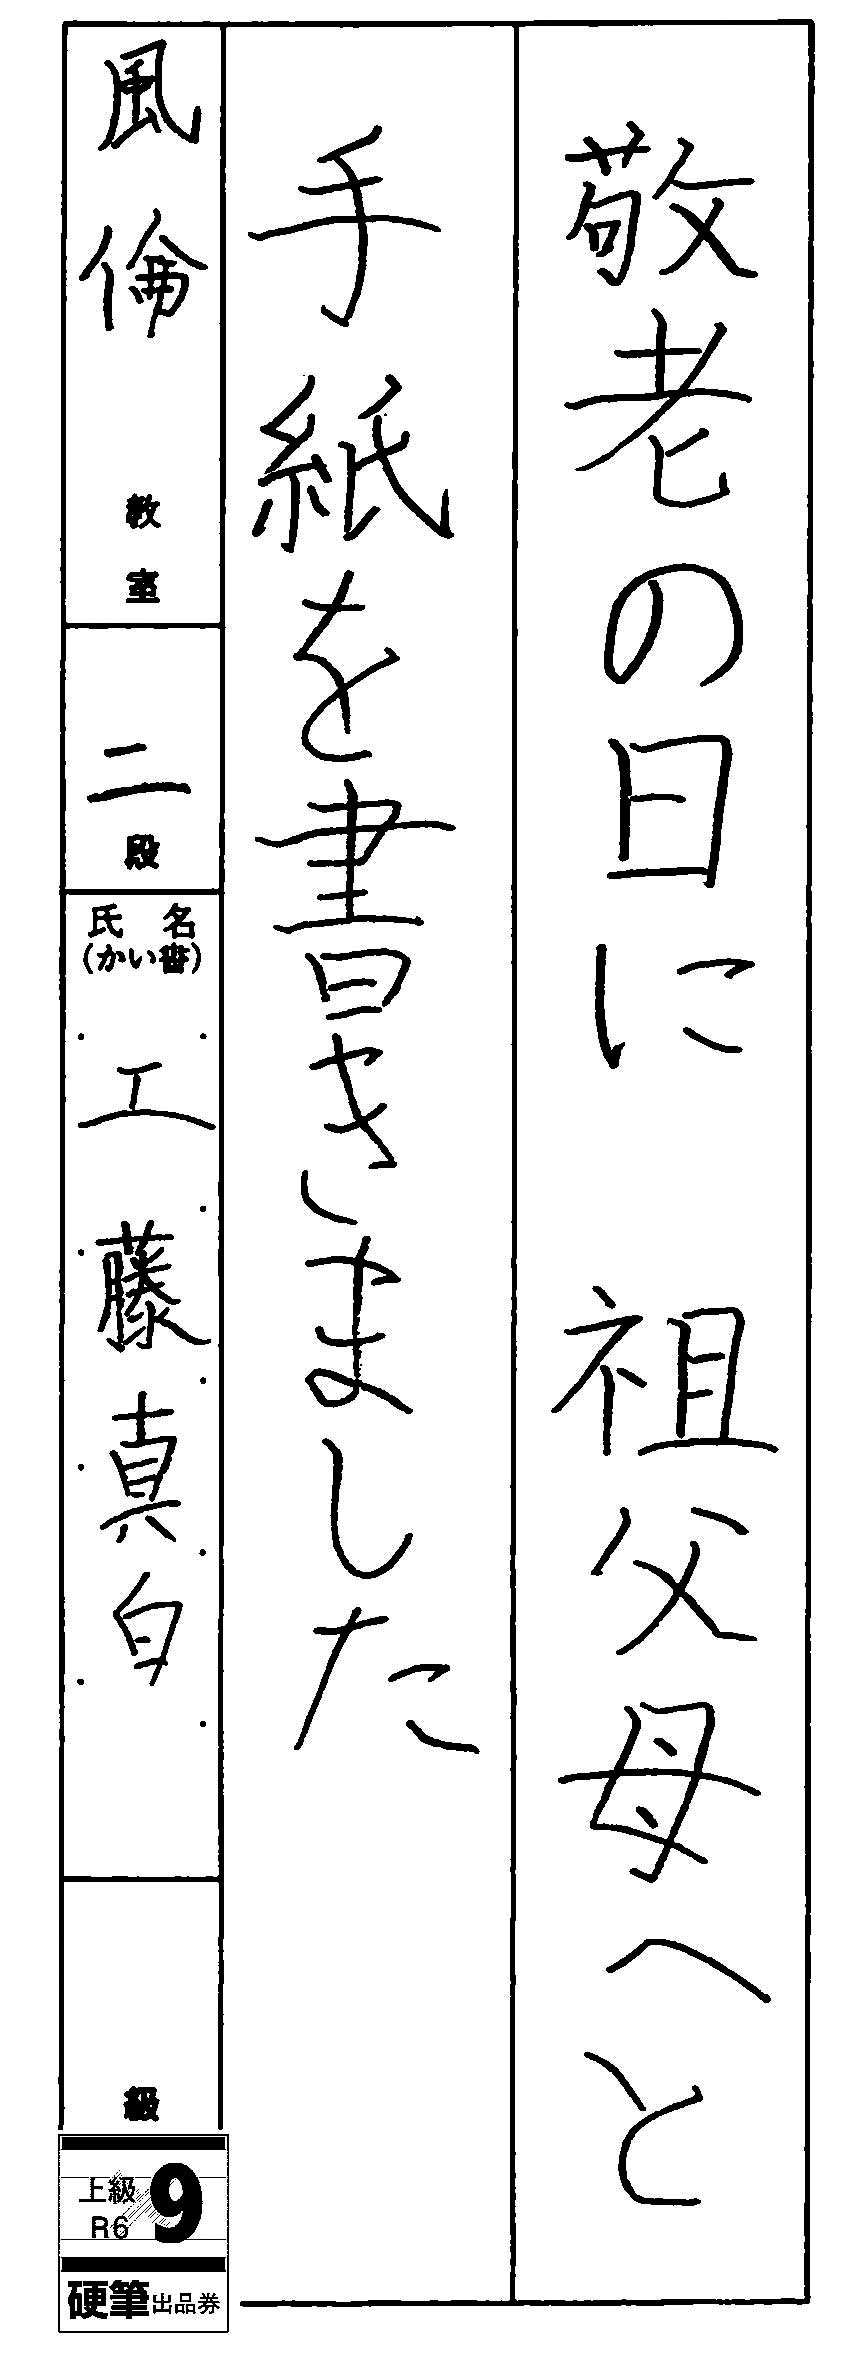 敬老の日に　祖父母へと
手紙を書きました
風倫 教室
二 段
氏名
(かい書)
工藤真白
級
上級
R6
9
硬筆出品券